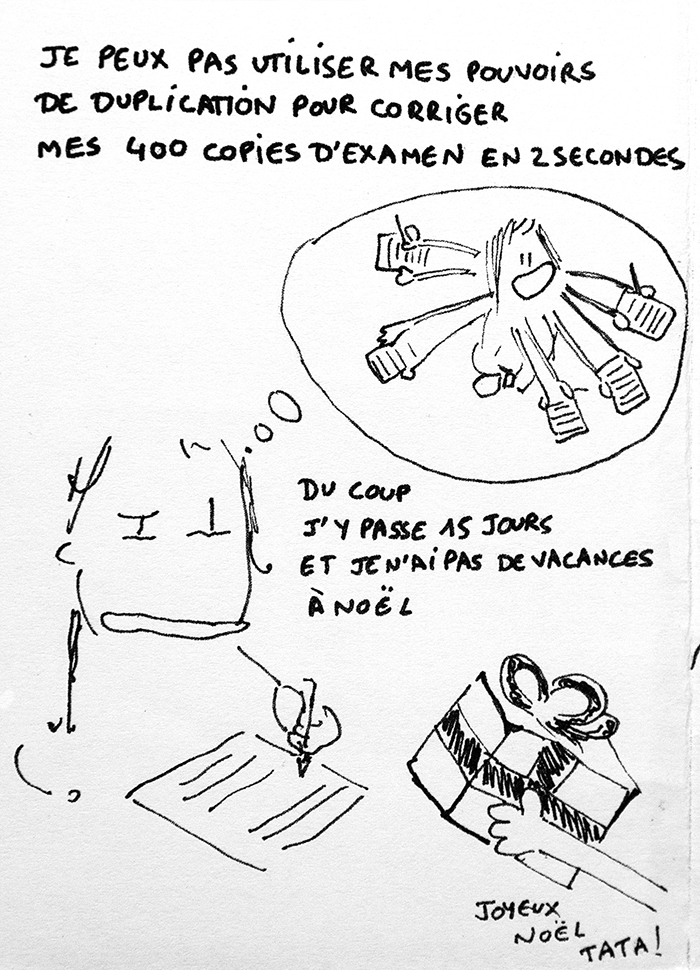 JE PEUX PAS UTILISER MES POUVOIRS
DE DUPLICATION POUR CORRIGER
MES 400 COPIES D'EXAMEN EN 2 SECONDES
DU COUP
J'Y PASSE 15 JOURS
ET JE N'AI PAS DE VACANCES
À NOËL
JOYEUX
NOËL
TATA!